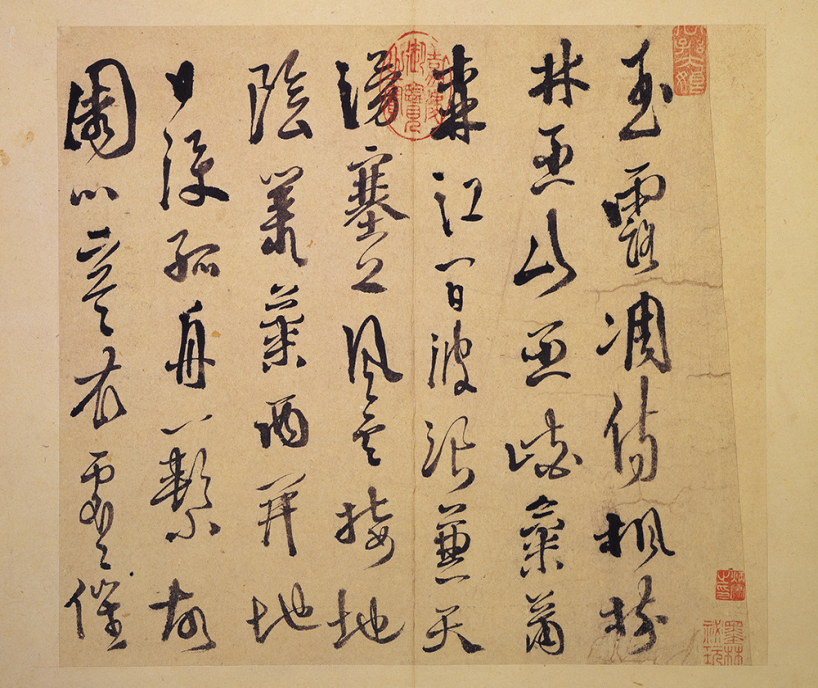 玉露凋傷楓樹
林巫山巫峽氣蕭
森江間波浪兼天
湧塞上風雲接地
陰叢菊兩開他
日淚孤舟一繫故
園心寒衣處々催
墨林
祕玩